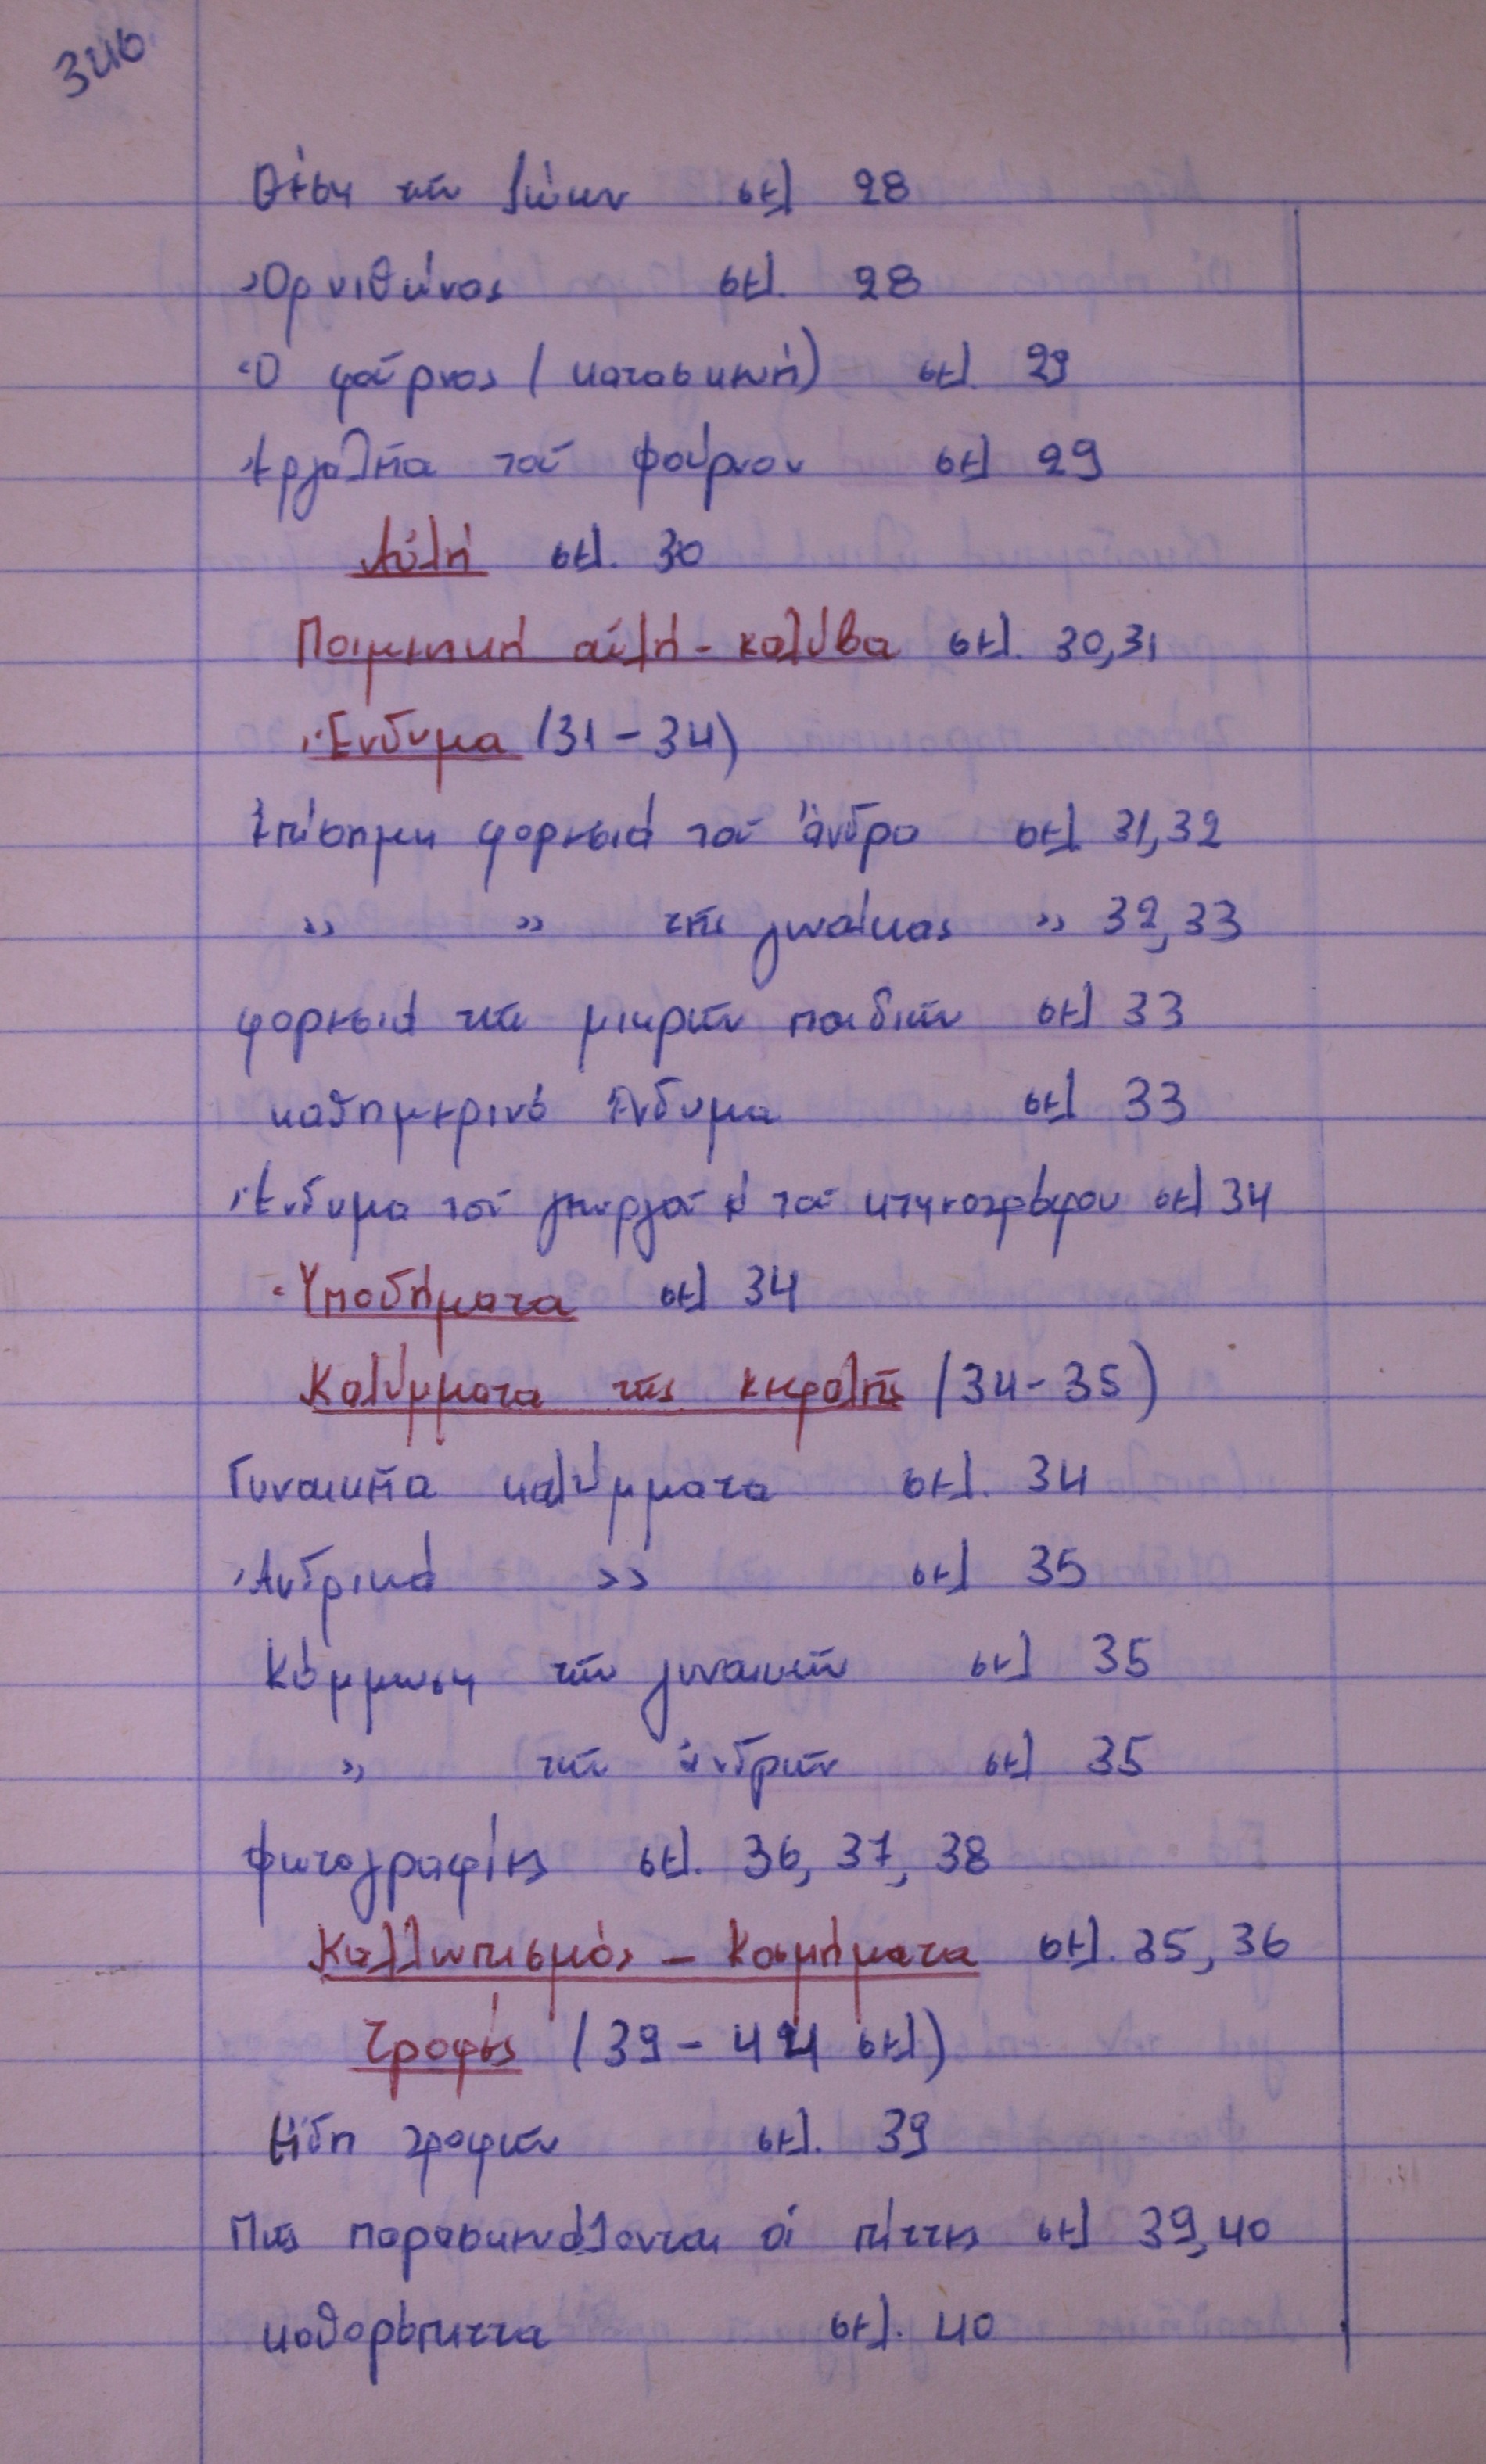 346.
Θέση τῶν ζώων σελ 28
Ὀρνιθώνας σελ. 28
Ὁ φοῦρνος (κατασκευή) σελ. 29
Ἐργαλεῖα τοῦ φούρνου σελ 29
Αὐλή σελ. 30
Ποιμενική αὐλή - καλύβα σελ. 30,31
Ἔνδυμα (31 - 34)
Ἐπίσημη φορεσιά τοῦ ἄνδρα σελ 31,32
» » τῆς γυναίκας » 32,33
φορεσιά τῶν μικρῶν παιδιῶν σελ 33
καθημερινό ἔνδυμα σελ 33
Ἔνδυμα τοῦ γεωργοῦ & τοῦ κτηνοτρόφου σελ 34
Ὑποδήματα σελ 34
Καλύμματα τῆς κεφαλῆς (34 - 35)
Γυναικεῖα καλύμματα σελ. 34
Ἀνδρικά » σελ 35
Κόμμωση τῶν γυναικῶν σελ 35
» τῶν ἀνδρῶν σελ 35
Φωτογραφίες σελ. 36, 37, 38
Καλλωπισμός - Κοσμήματα σελ. 35, 36
Τροφές (39 - 44 σελ)
Εἴδη τροφῶν σελ. 39
Πῶς παρασκευάζονται οἱ πίττες σελ 39,40
καθαρόπιττα σελ. 40